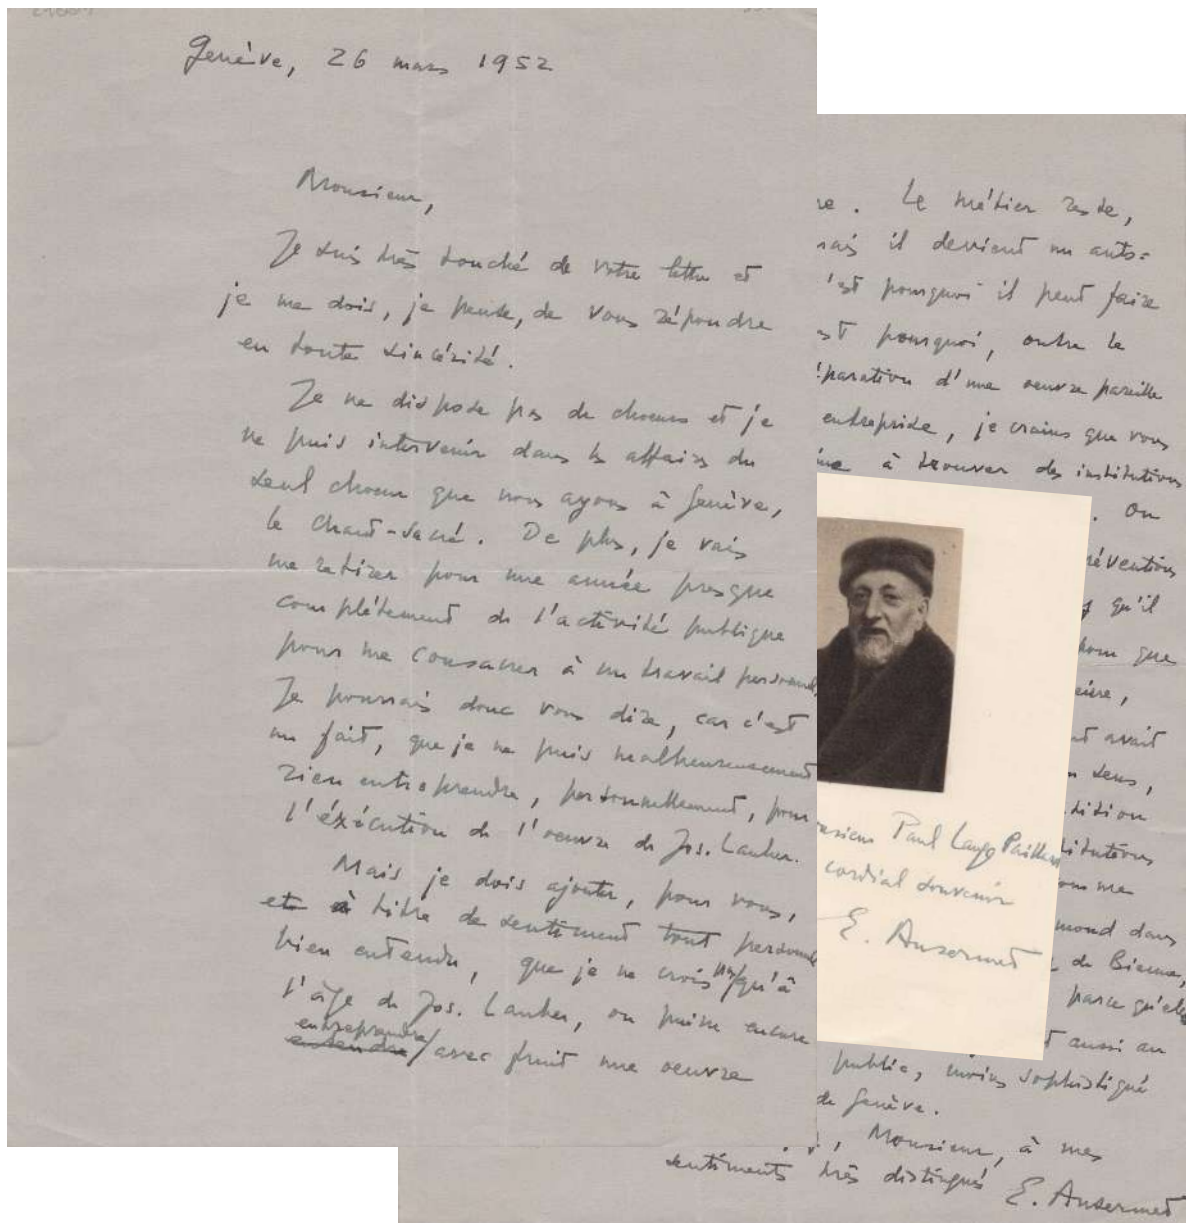 Genève, 26 mars 1952
Monsieur,
Je suis très touché de votre lettre et
je me dois, je pense, de vous répondre
en toute sincérité.
Je ne dispose pas de choeurs et je
ne puis intervenir dans les affaires du
seul choeur que nous ayons à Genève,
le Chant-sacré. De plus, je vais
me retirer pour une année presque
complètement de l'activité publique
pour me consacrer à un travail personnel.
Je pourrais donc vous dire, car c'est
un fait, que je ne puis malheureusement
rien entreprendre, personnellement, pour
l'éxécution de l'oeuvre de Jos. Lauber.
Mais je dois ajouter, pour vous,
et à titre de sentiment tout personnel
bien entendu, que je ne crois pas qu'à
l'âge de Jos. Lauber, on puisse encore
entreprendre
entendre avec fruit une oeuvre
re. Le métier reste,
mais il devient un auto=
'est pourquoi il peut faire
est pourquoi, outre le
éparation d'une oeuvre pareille
entreprise, je crains que vous
à trouver des institutions
. On
préventions
qu'il
que
avait
sens,
institutions
mond dans
de Bienne,
parce qu'elle
aussi au
public, moins sophistiqué
de Genève.
, Monsieur, à mes
sentiments très distingués
E. Ansermet
Monsieur Paul Lang Paillard
cordial souvenir
E. Ansermet